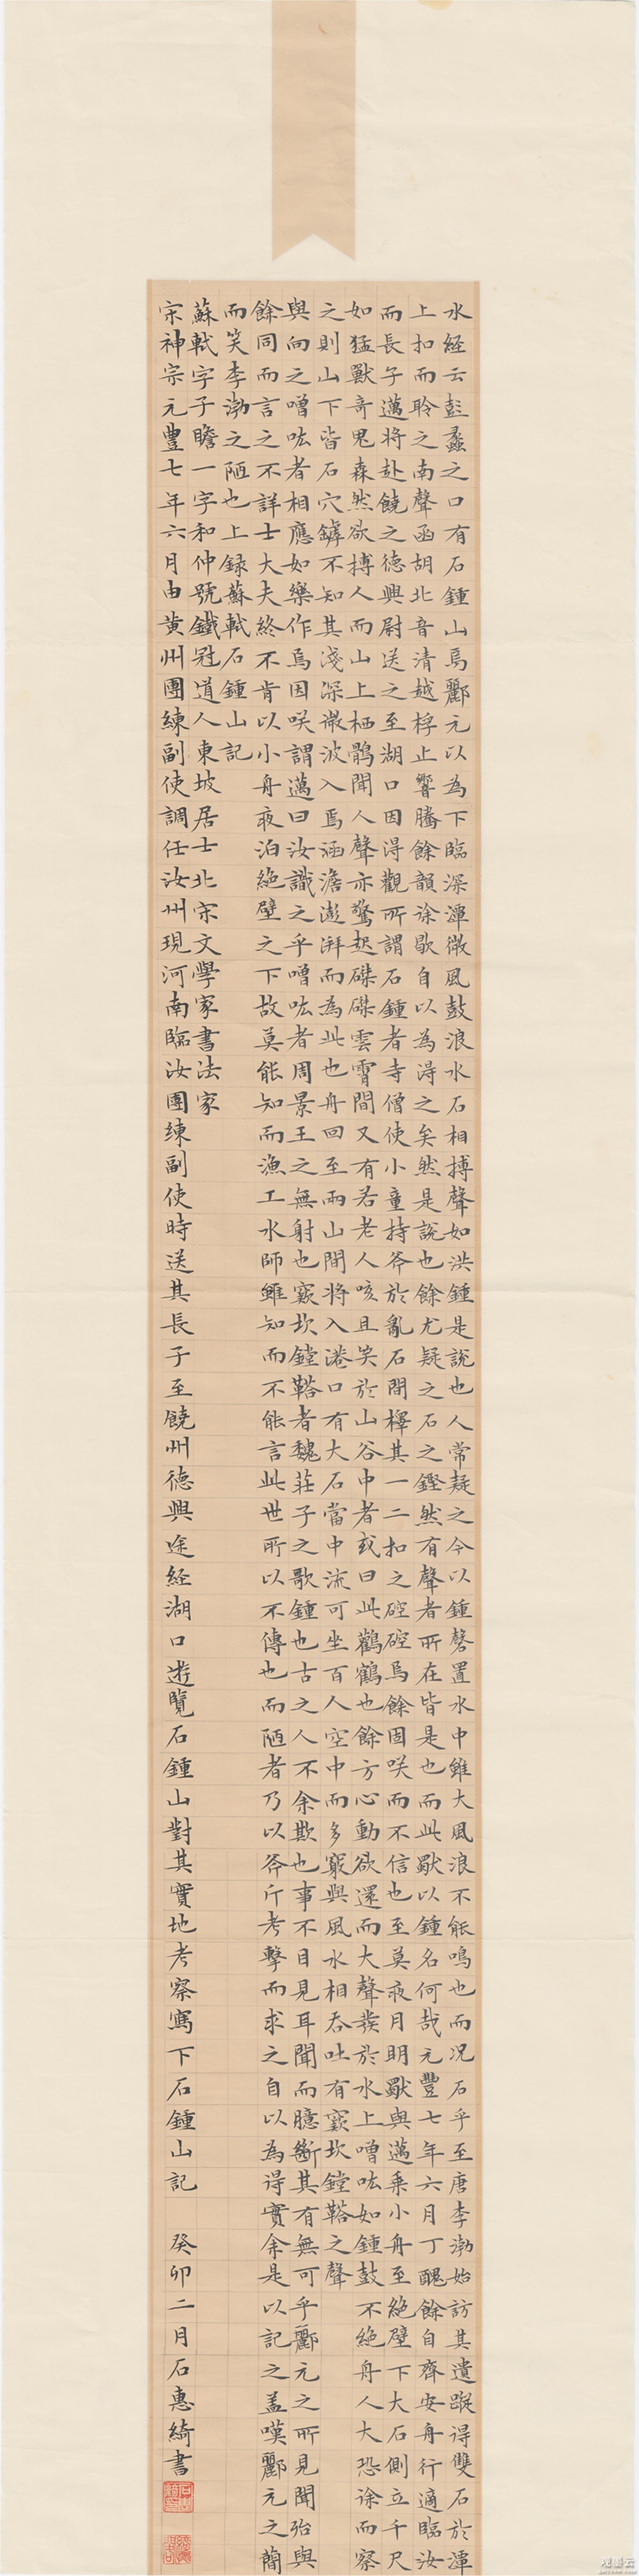 水經云彭蠡之口有石鍾山焉酈元以為下臨深潭微風鼓浪水石相搏聲如洪鍾是說也人常疑之今以鍾磬置水中雖大風浪不能鳴也而况石乎至唐李渤始訪其遺蹤得雙石於潭
上扣而聆之南聲函胡北音清越桴止響騰餘韻徐歇自以為淂之矣然是說也餘尤疑之石之鏗然有聲者所在皆是也而此獨以鍾名何哉元豐七年六月丁醜餘自齊安舟行適臨汝
而長子邁將赴饒之德興尉送之至湖口因淂觀所謂石鍾者寺僧使小童持斧於亂石間擇其一二扣之硿硿焉餘固咲而不信也至莫夜月明獨與邁乘小舟至絶壁下大石側立千尺
如猛獸奇鬼森然欲搏人而山上栖鶻聞人聲亦驚起磔磔雲霄間又有若老人咳且笑於山谷中者或曰此鸛鶴也餘方心動欲還而大聲發於水上噌吰如鍾鼓不絶舟人大恐徐而察
之則山下皆石穴罅不知其淺深微波入焉涵澹澎湃而為此也舟回至兩山間將入港口有大石當中流可坐百人空中而多竅與風水相吞吐有窾坎鏜鞳之聲
與向之噌吰者相應如樂作焉因咲謂邁曰汝識之乎噌吰者周景王之無射也窾坎鏜鞳者魏莊子之歌鍾也古之人不余欺也事不目見耳聞而臆斷其有無可乎酈元之所見聞殆與
餘同而言之不詳士大夫終不肯以小舟夜泊絶壁之下故莫能知而漁工水師雖知而不能言此世所以不傳也而陋者乃以斧斤考擊而求之自以為得實余是以記之蓋嘆酈元之簡
而笑李渤之陋也上録蘇軾石鍾山記
蘇軾字子瞻一字和仲號鐵冠道人東坡居士北宋文學家書法家
宋神宗元豐七年六月由黄州團練副使調任汝州現河南臨汝團練副使時送其長子至饒州德興途經湖口遊覽石鍾山對其實地考察寫下石鍾山記 癸卯二月石惠綺書